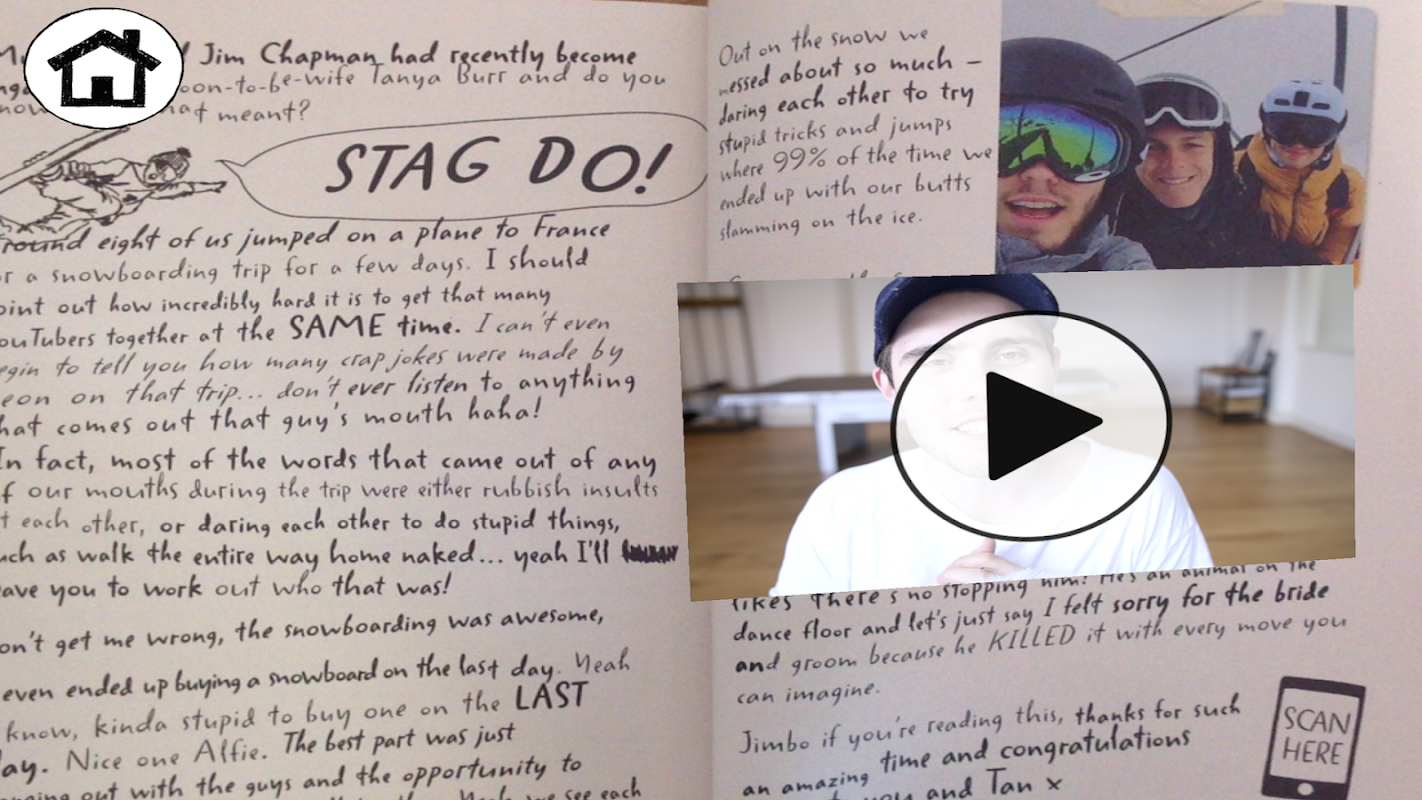 Jim Chapman had recently become
soon-to-be-wife Tanya Burr and do you
that meant?
STAG DO!
round eight of us jumped on a plane to France
or a snowboarding trip for a few days. I should
oint out how incredibly hard it is to get that many
ouTubers together at the SAME time. I can't even
egin to tell you how many crap jokes were made by
eon on that trip... don't ever listen to anything
hat comes out that guy's mouth haha!
In fact, most of the words that came out of any
f our mouths during the trip were either rubbish insults
t each other, or daring each other to do stupid things,
uch as walk the entire way home naked... yeah I'll
eave you to work out who that was!
on't get me wrong, the snowboarding was awesome,
even ended up buying a snowboard on the last day. Yeah
know, kinda stupid to buy one on the LAST
ay. Nice one Alfie. The best part was just
anging out with the guys and the opportunity to
we see each
Out on the snow we
messed about so much –
daring each other to try
stupid tricks and jumps
where 99% of the time we
ended up with our butts
slamming on the ice.
likes There's no stopping him! He's an animal on the
dance floor and let's just say I felt sorry for the bride
and groom because he KILLED it with every move you
can imagine.
Jimbo if you're reading this, thanks for such
an amazing time and congratulations
you and Tan x
SCAN
HERE